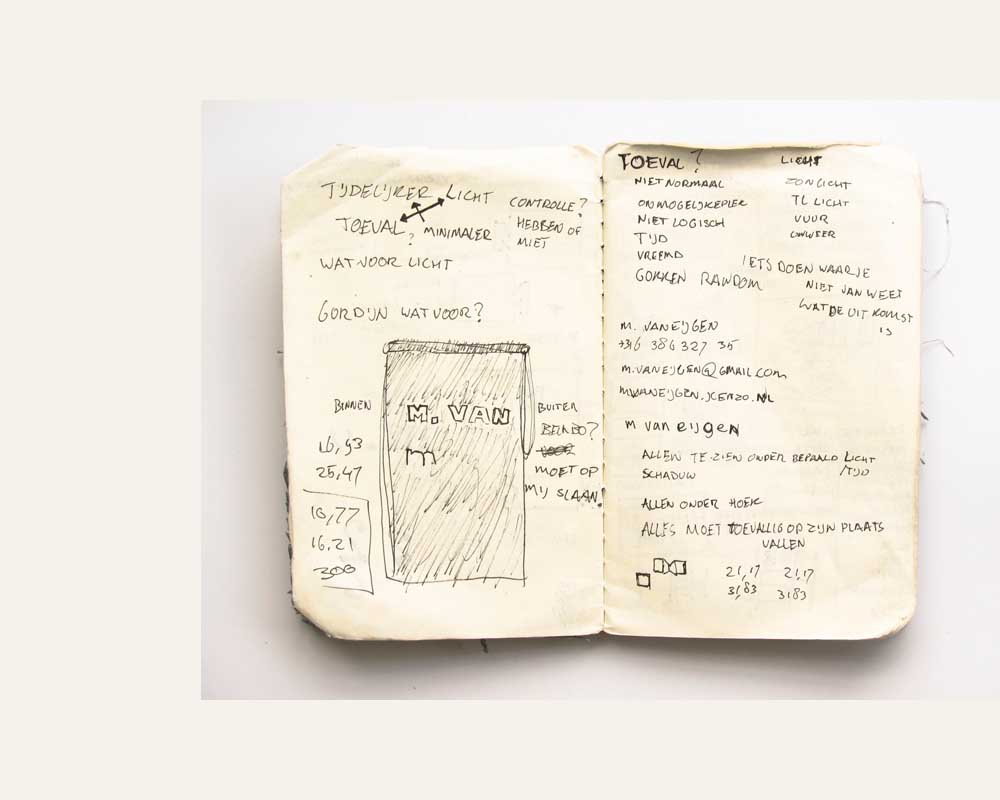 TIJDELIJKER LICHT
TOEVAL? MINIMALER
CONTROLLE?
HEBBEN OF
NIET
WAT VOOR LICHT
GORDIJN WAT VOOR?
BINNEN
M. VAN
m
BUITEN
MOET OP
MIJ SLAAN!
16,93
25,47
16,77
16.21
300
TOEVAL?
NIET NORMAAL
ONMOGELIJKE
NIET LOGISCH
TIJD
VREEMD
GOKKEN RANDOM
LICHT
ZONLICHT
TL LICHT
VUUR
ONWEER
IETS DOEN WAAR JE
NIET VAN WEET
WAT DE UITKOMST
IS
M. VAN EIJGEN
+316 386 327 35
M.VANEIJGEN@GMAIL.COM
m van eijgen
ALLEEN TE ZIEN ONDER BEPAALD LICHT
/TIJD
SCHADUW
ALLEEN ONDER HOEK
ALLES MOET TOEVALLIG OP ZIJN PLAATS
VALLEN
21,17 21,17
31,83 31,83